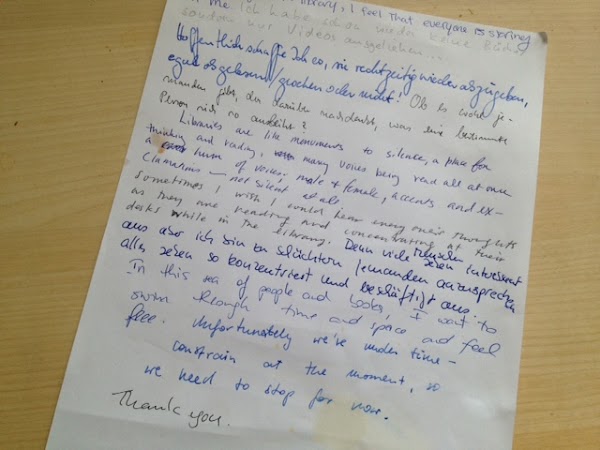 library, I feel that everyone is staring
me Ich habe schon wieder keine Bücher
sondern nur Videos ausgeliehen...
Hoffentlich schaffe Ich es, sie rechtzeitig wieder abzugeben,
egal ob gelesen/gesehen oder nicht! Ob es wohl je-
manden gibt, der darüber nachdenkt, was eine bestimmte
Person sich so ausleiht?
Libraries are like monuments to silence, a place for
thinking and reading, many voices being read all at once
a hum of voices, male & female, accents and ex-
clamations — not silent at all.
Sometimes, I wish I could hear everyone's thoughts
as they are reading and concentrating at their
desks while in the library. Denn viele Menschen sehen interessant
aus aber ich bin zu schüchtern jemanden anzusprechen
alles sehen so konzentriert und beschäftigt aus.
In this sea of people and books, I want to
swim through time and space and feel
free. Unfortunately we're under time-
constrain at the moment, so
we need to stop for now.
Thank you.